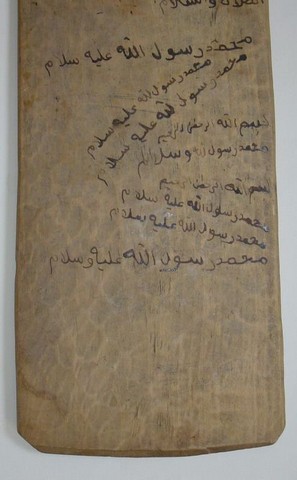 الصلاة والسلام
محمد رسول الله عليه سلام
محمد رسول الله عليه سلام
محمد رسول الله عليه سلام
بسم الله الرحمن الرحيم
محمد رسول الله وسلام
بسم الله الرحمن الرحيم
محمد رسول الله عليه سلام
محمد رسول الله عليه سلام
محمد رسول الله عليه وسلام